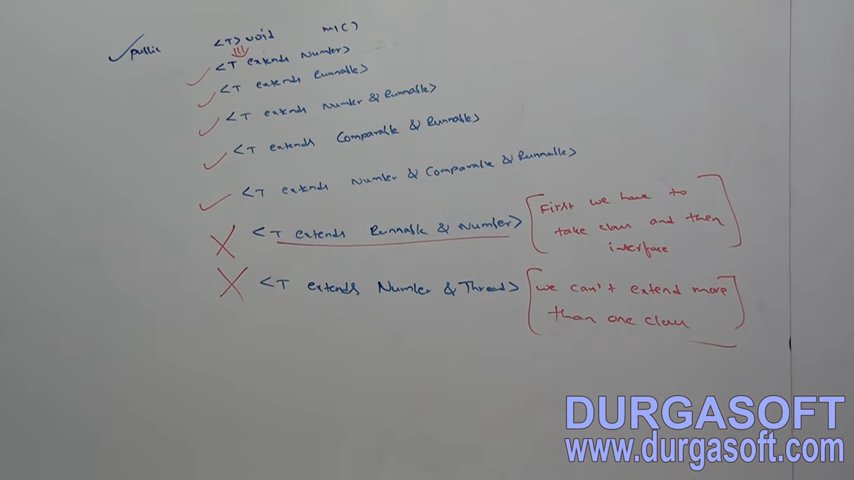 public <T> void m1()
<T extends Number>
<T extends Runnable>
<T extends Number & Runnable>
<T extends Comparable & Runnable>
<T extends Number & Comparable & Runnable>
<T extends Runnable & Number> [First we have to
take class and then
interface]
<T extends Number & Thread> [we can't extend more
than one class]
DURGASOFT
www.durgasoft.com